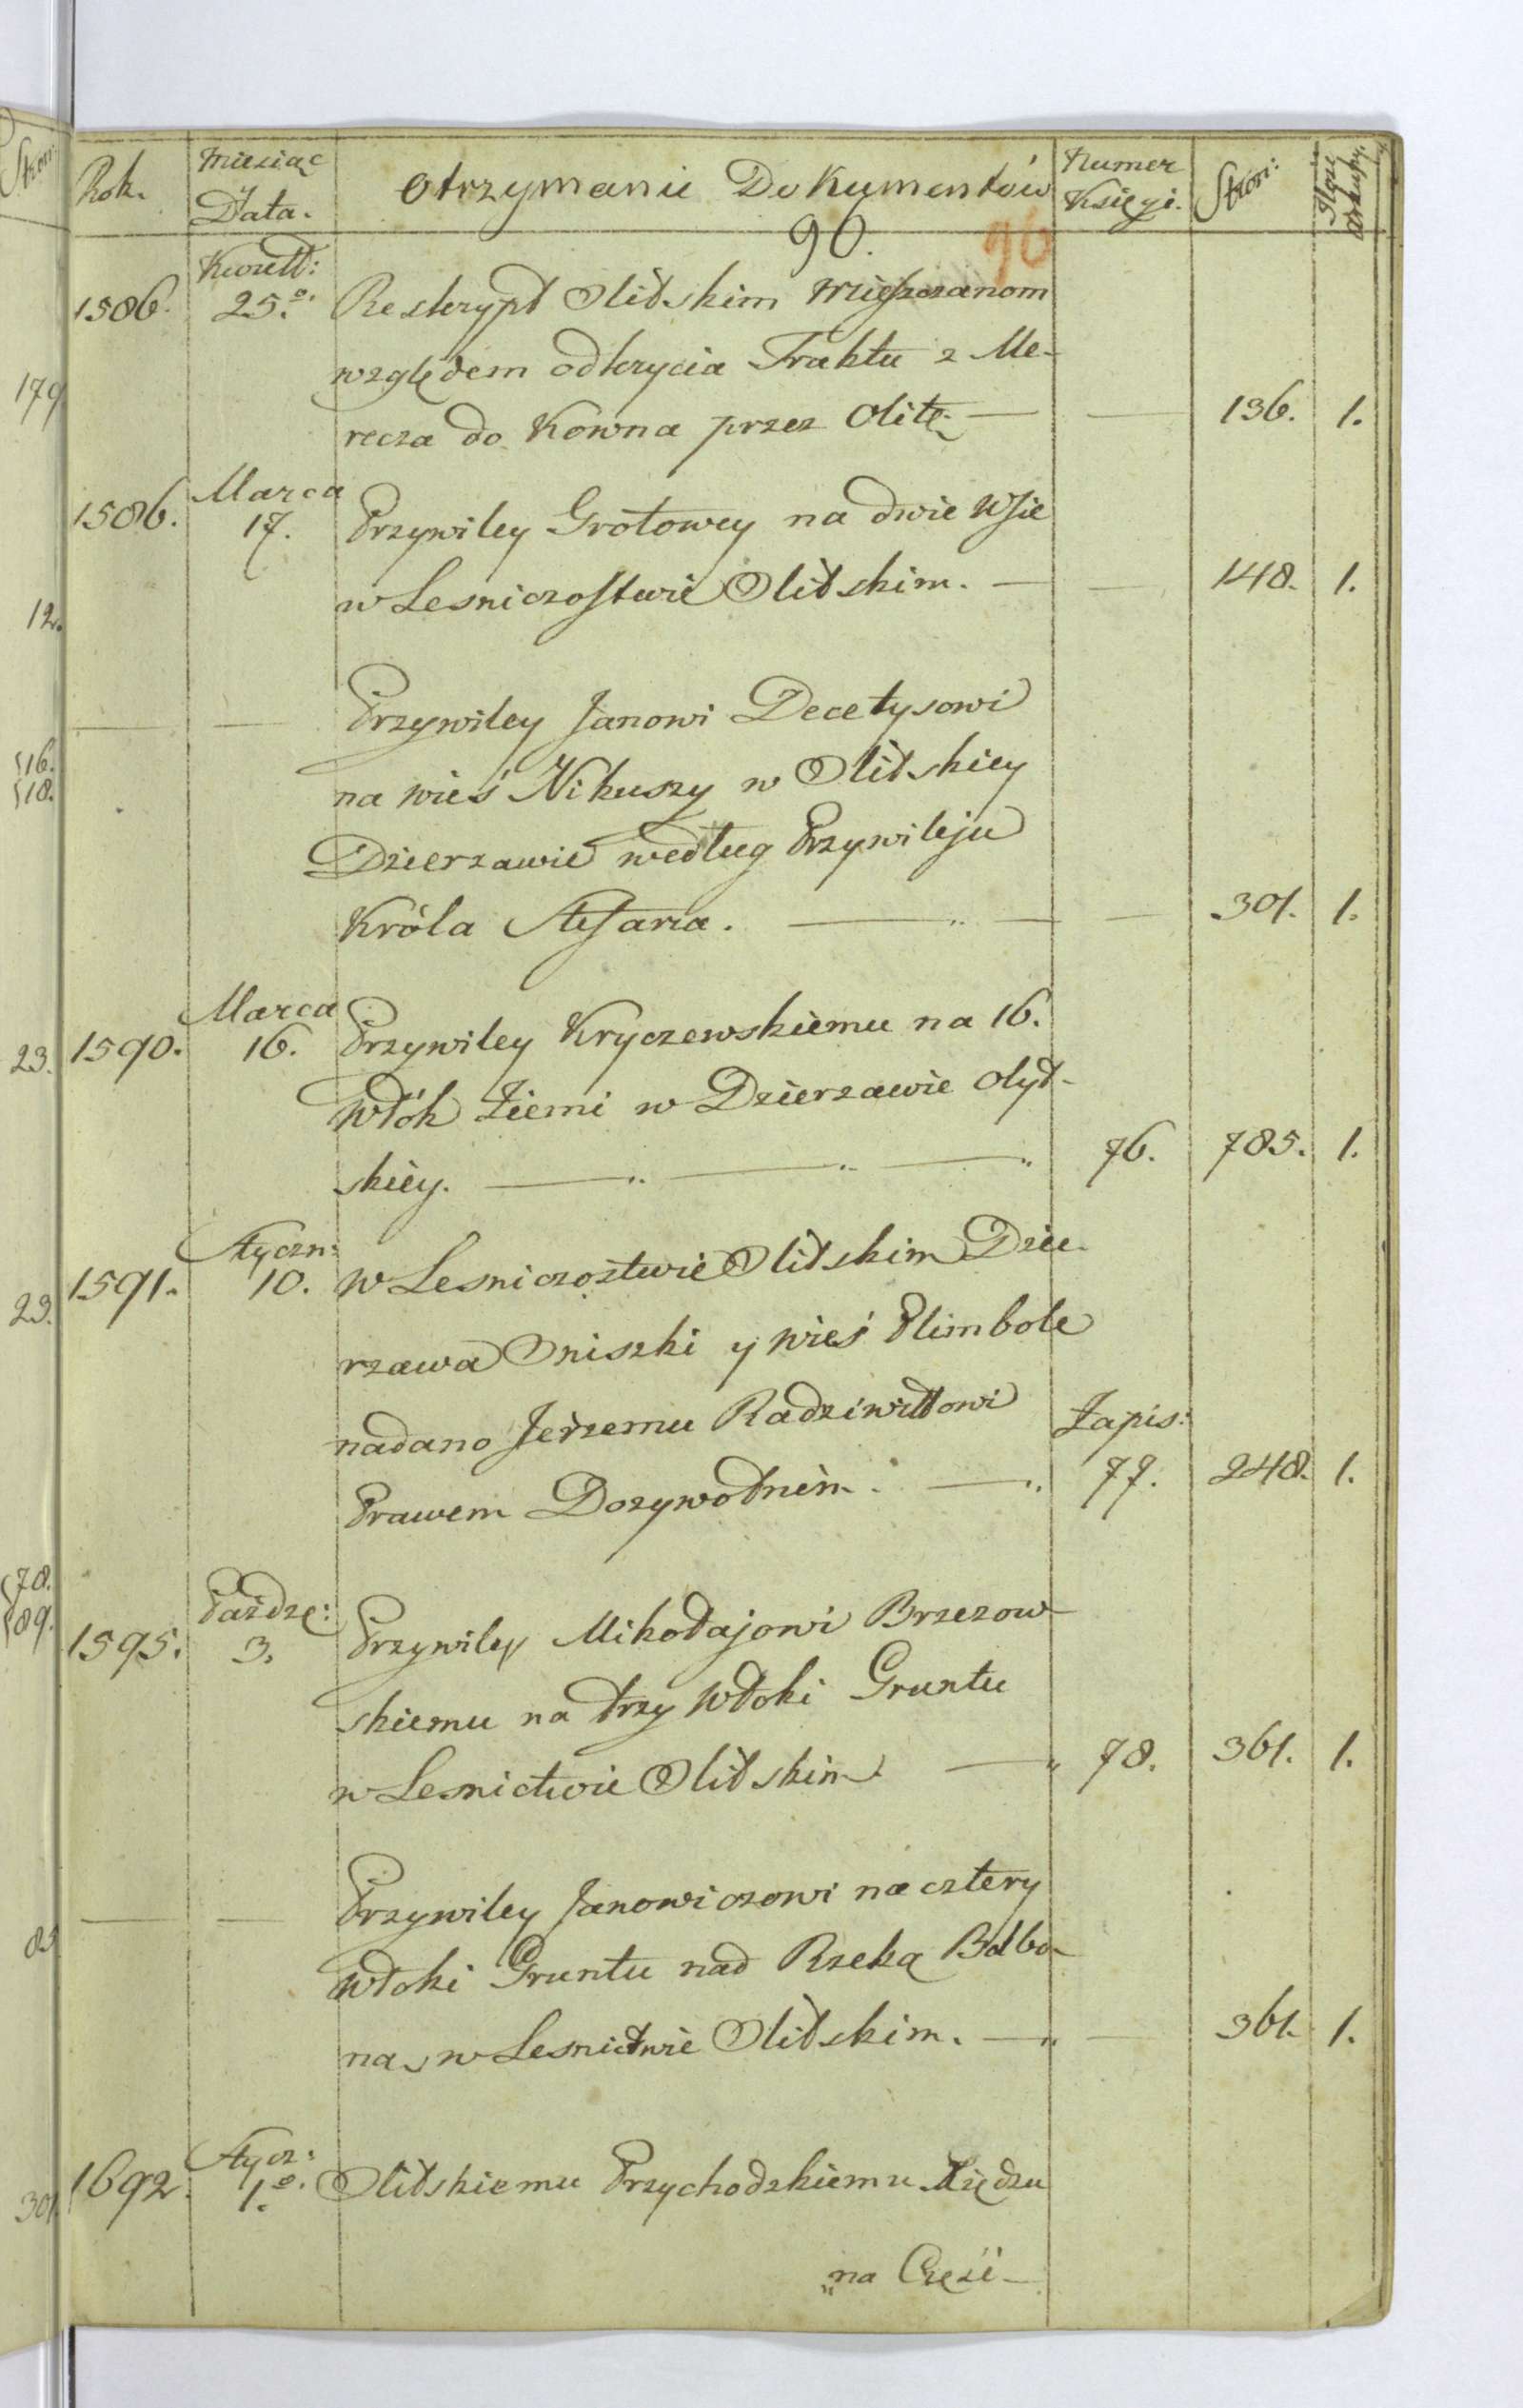 Rok. Miesiąc y Data. Otrzymanie Dokumentów Numer Księgi. Stron: Ilość Arkuszy.
90. 90
Kwiett:
1586. 25.o Reskrypt Olitskim Mieszczanom
względem odkrycia Traktu z Me-
recza do Kowna przez Olitę. — — 136. 1.
Marca
1586. 17. Przywiley Grotowey na dwie Wsie
w Lesniczostwie Olitskim. — — 148. 1.
— — Przywiley Janowi Decetysowi
na wieś Nikuszy w Olitskiey
Dzierzawie według Przywileju
Króla Stefana. — — — 301. 1.
Marca
1590. 16. Przywiley Kryczewskiemu na 16.
Włók Ziemi w Dzierzawie Olyt-
skiey. — — — 76. 785. 1.
Styczn:
1591. 10. w Lesniczostwie Olitskim Dzie-
rzawa Oniszki y wieś Plimbole
nadano Jerzemu Radziwiłłowi Zapis:
Prawem Dozywotnim. — 77. 248. 1.
Paźdz:
1595. 3. Przywiley Mikołajowi Brzezow-
skiemu na trzy Włoki Gruntu
w Lesnictwie Olitskim — 78. 361. 1.
— — Przywiley Janowiczowi na cztery
Włoki Gruntu nad Rzeką
na, w Lesnictwie Olitskim. — — 361. 1.
Stycz:
1692. 1.o Olitskiemu Przychodzkiemu Xiędzu
na Częśi-